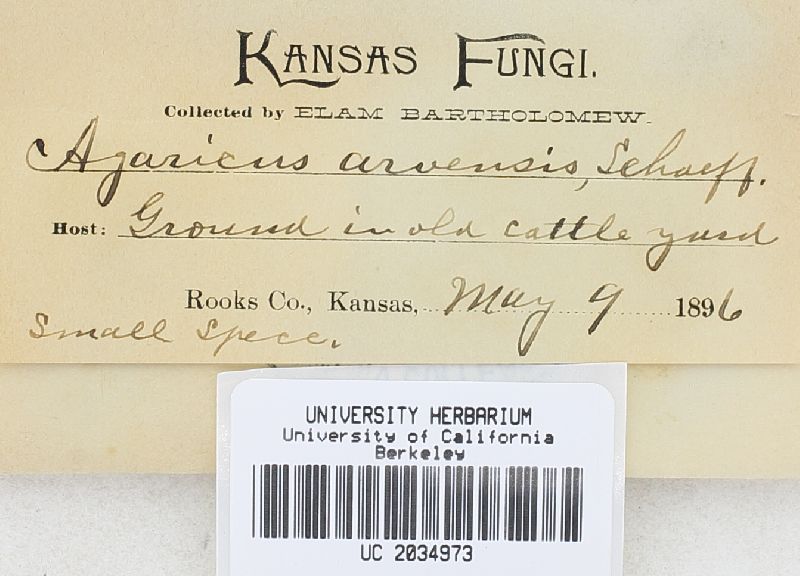 KANSAS FUNGI.
Collected by ELAM BARTHOLOMEW.
Agaricus arvensis, Schaeff.
Host: Ground in old cattle yard
Rooks Co., Kansas, May 9 1896
Small Specc.
UNIVERSITY HERBARIUM
University of California
Berkeley
UC 2034973